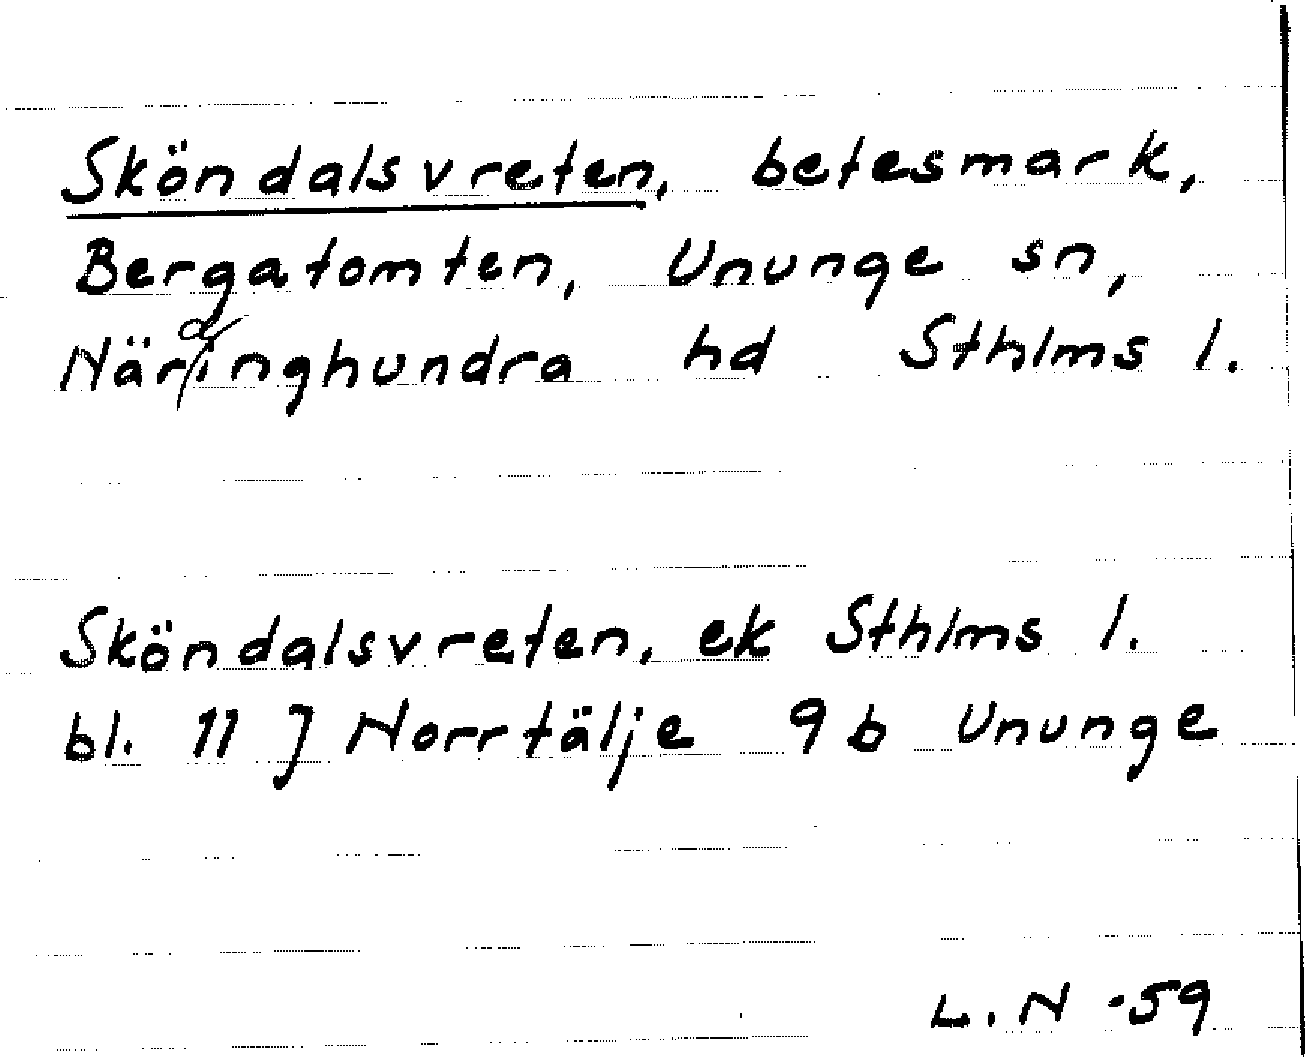 Sköndalsvreten, betesmark,
Bergatomten, Ununge sn,
Närdinghundra hd Sthlms l.
Sköndalsvreten, ek Sthlms l.
bl. 11 J Norrtälje 9 b Ununge
L.N -59